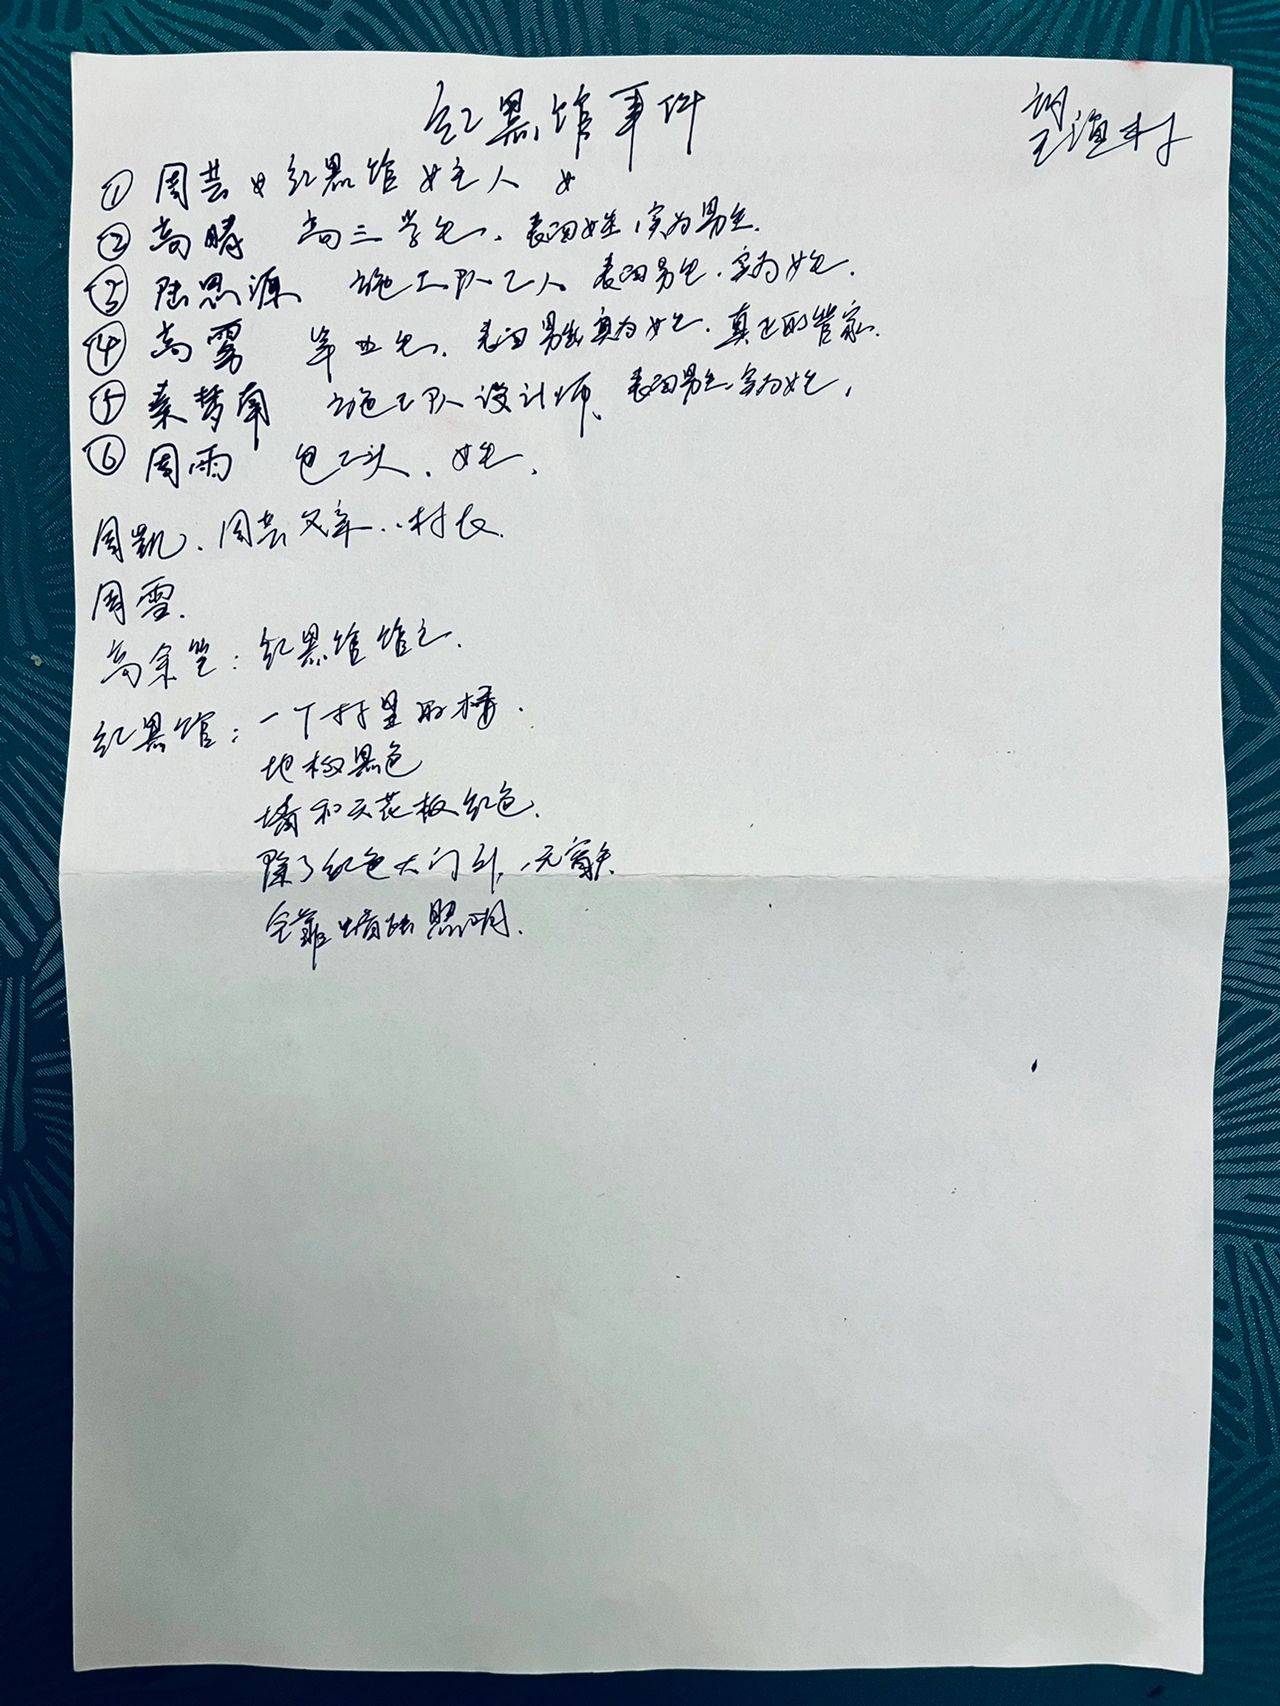 红黑馆事件
望渔村
① 周芸 女 红黑馆女主人 女
② 高晴 高三学生、表面女生,实为男生.
③ 陆思源 施工队工人 表面男生.实为女生.
④ 高雾 毕业生、表面男生实为女生.真正的管家.
⑤ 秦梦南 施工队设计师、表面男生.实为女生,
⑥ 周雨 包工头、女生,
周凯、周芸父亲..村长
周雪.
高余笙:红黑馆馆主.
红黑馆:一个村里的楼.
地板黑色
墙和天花板红色.
除了红色大门外、无窗户.
全靠蜡烛照明.